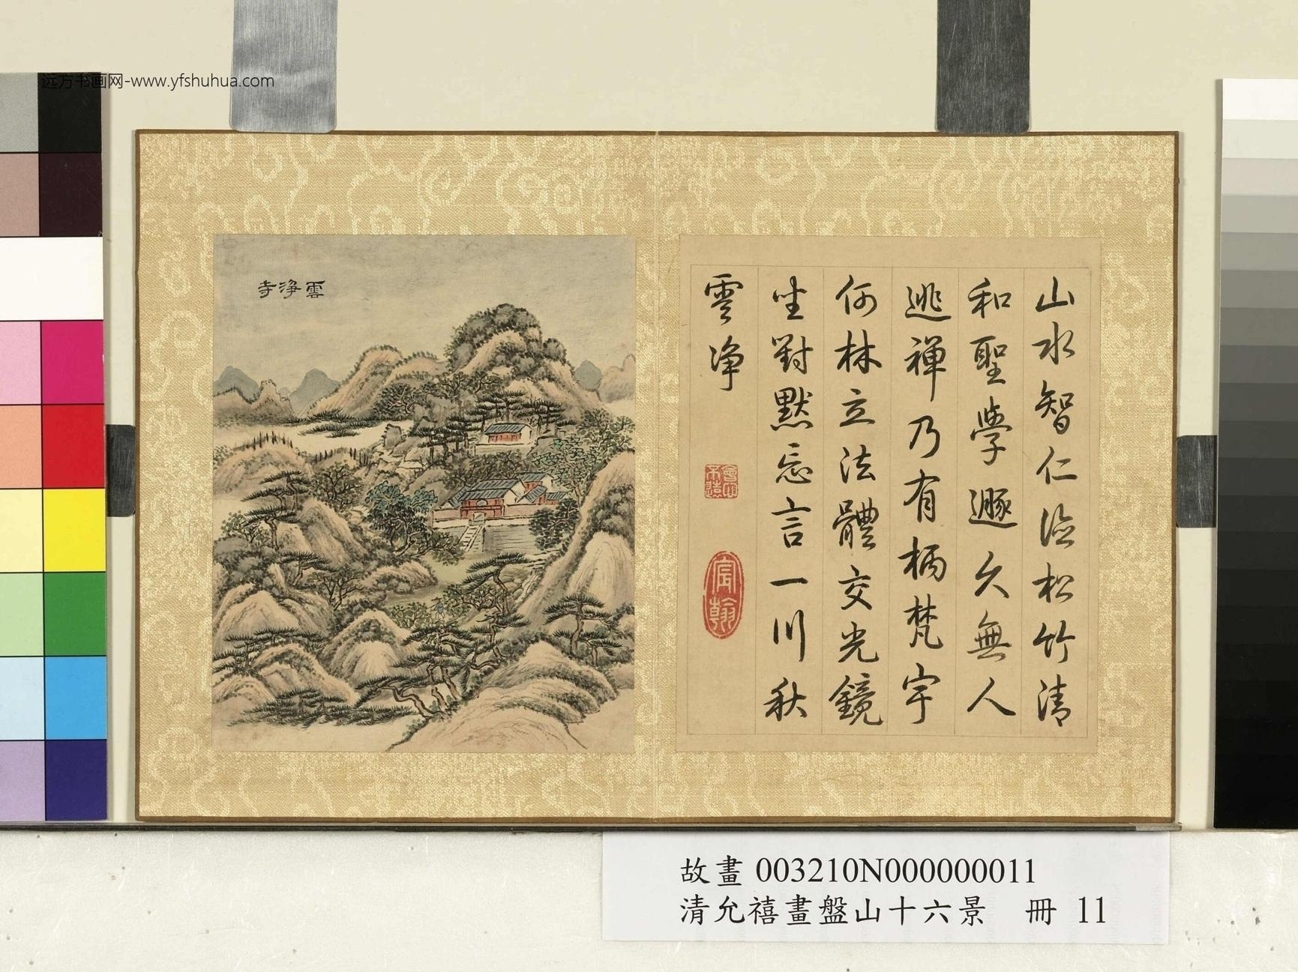 远方书画网-www.yfshuhua.com
山水智仁洽松竹清
和聖學遯久無人
逃禪乃有柄梵宇
何林立法體交光鏡
坐對默忘言一川秋
雲净
會心不遠
宸翰
雲淨寺
故畫 003210N000000011
清允禧畫盤山十六景 冊 11